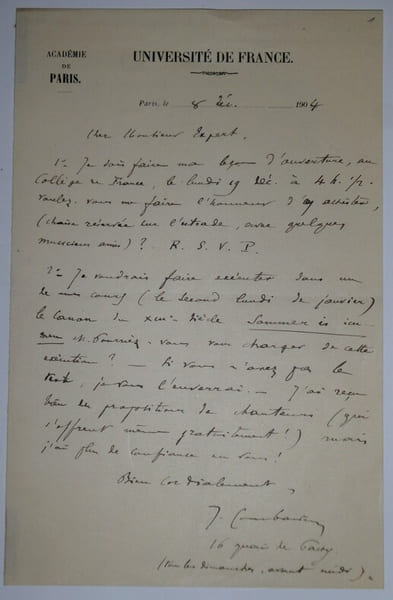 1
ACADÉMIE
DE
PARIS.
UNIVERSITÉ DE FRANCE.
Paris, le 8 Déc. 1904
Cher Monsieur Expert,
1º Je dois faire ma leçon d'ouverture, au
Collège de France, le lundi 19 Déc. à 4 h. 1/2.
voulez-vous me faire l'honneur d'y assister,
(chaise réservée sur l'estrade, avec quelques
musiciens amis) ? R. S. V. P.
2º Je voudrais faire exécuter dans un
de mes cours (le second lundi de janvier)
le canon du XIIIe siècle Sommer is icu-
men. Pourriez-vous vous charger de cette
exécution ? — Si vous n'avez pas le
texte, je vous l'enverrai. — J'ai reçu
bien des propositions de chanteurs (qui
s'offrent même gratuitement !) mais
j'ai plus de confiance en vous !
Bien cordialement,
J. Combarieu
16 quai de Passy
(tous les dimanches, avant midi).